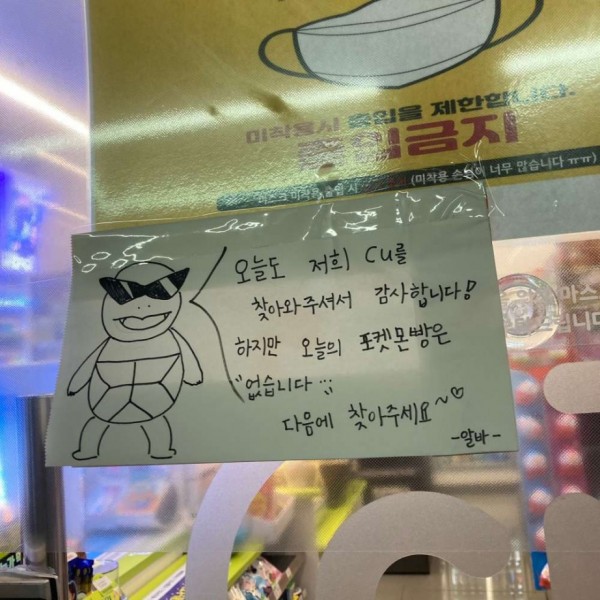 미착용시 출입을 제한합니다.
출입금지
마스크 미착용 출입 시 (미착용 손님이 너무 많습니다 ㅠㅠ)
오늘도 저희 CU를
찾아와주셔서 감사합니다!
하지만 오늘의 포켓몬빵은
"없습니다
다음에 찾아주세요~♡
-알바-
마스
입니다